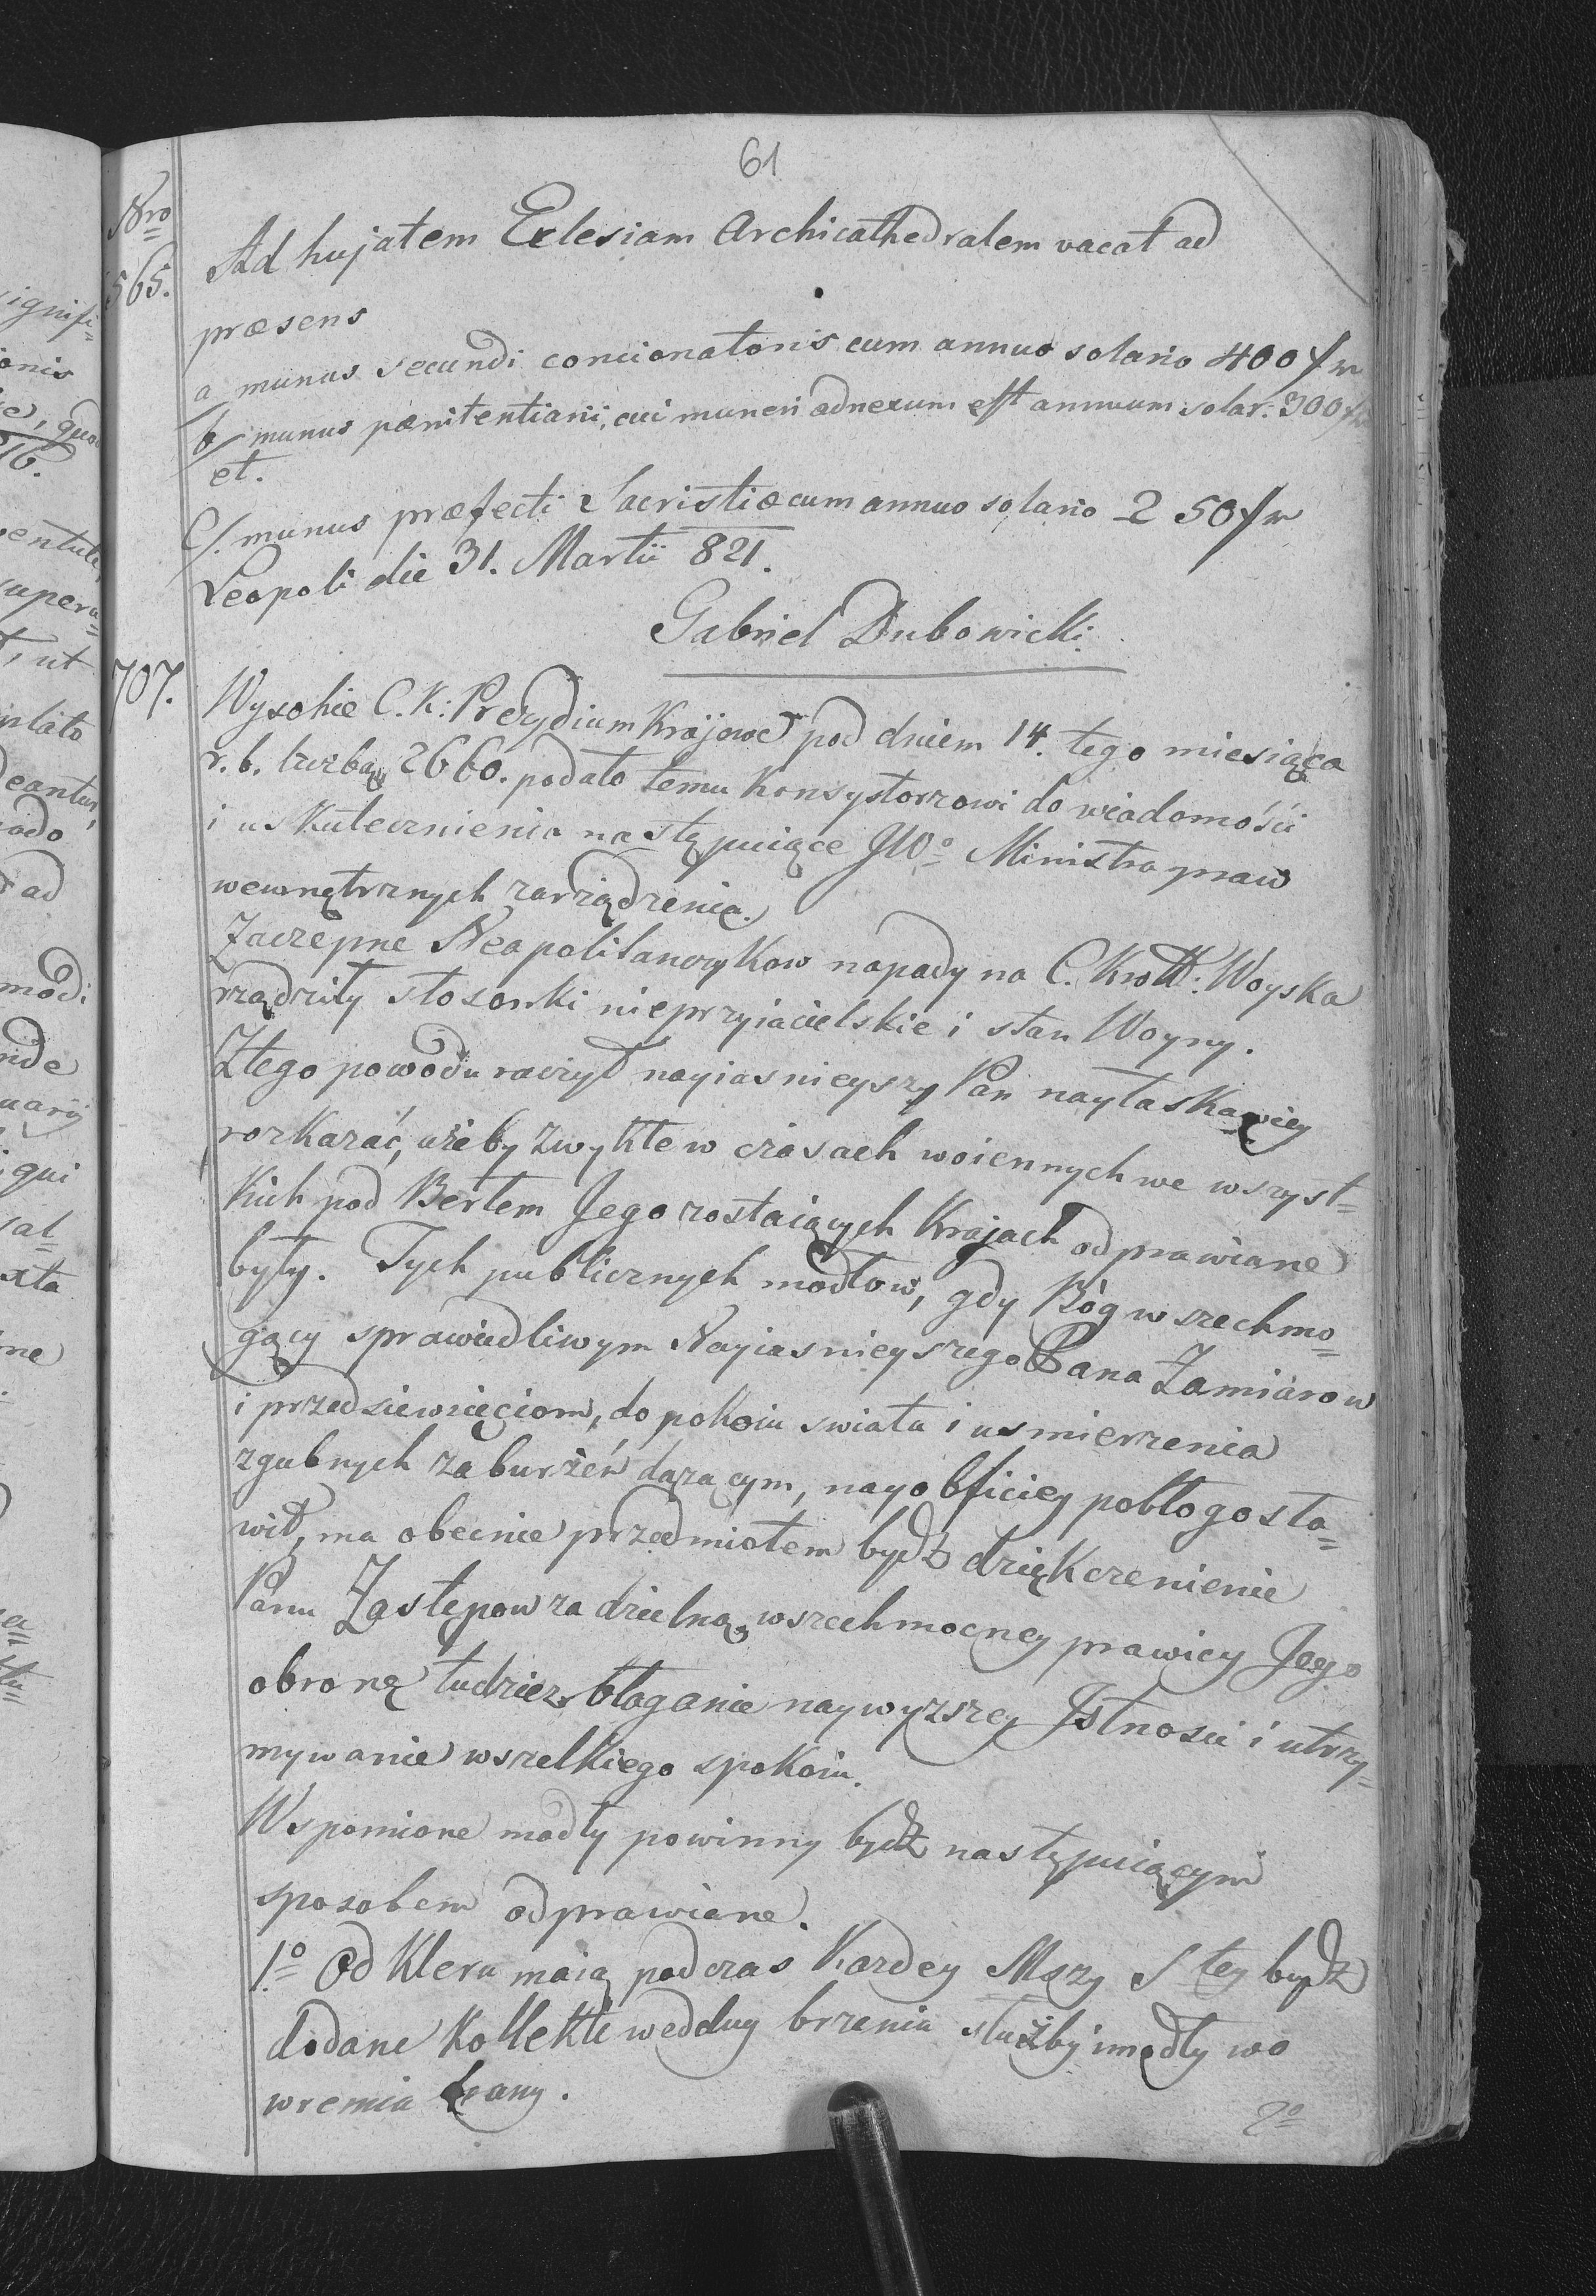 61
Nro
565.
Ad hujatem Eclesiam Archicathedralem vacat ad
præsens
a munus secundi concionatoris cum annuo solario 400 f
b/ munus pænitentiarii, cui muneri adnexum est annuum solar: 300 f
et.
C/. munus præfecti Sacristiæ cum annuo solario 250 f
Leopoli die 31. Martii 821.
Gabriel Dubowicki
707.
Wysokie C. K: Prezydium Krajowe pod dniem 14. tego miesiąca
r. b. liczbą 2660. podało temu Konsystorzowi do wiadomości
i uskutecznienia następuiące JWo Ministra praw
wewnętrznych zarządzenie.
Zaczepne Neapolitanczykow napady na C. Kroll: Woyska
rządziły stosonki nieprzyiacielskie i stan Woyny.
Ztego powodu raczył nayiasnieyszy Pan nayłaskawiey
rozkazać, ażeby zwykłe w czasach woiennych we wszyst=
kich pod Berłem Jego zostaiących Krajach odprawiane
były. Tych publicznych modłow, gdy Bóg wszechmo=
gący sprawiedliwym Nayiasnieyszego Pana Zamiarow
i przedsiewzięciom, do pokoiu swiata i usmierzenia
zgubnych zaburzeń dązącym, nayobficiey pobłogosła=
wił, ma obecnie przedmiotem bydź dziękczenienie
Panu Zastępow za dzielną, wszechmocney prawicy Jego
obronę tudziez błaganie naywyzszey Jstnosci i utrzy=
mywanie wszelkiego spokoiu.
Wspomione modły powinny bydź następuiącym
sposobem odprawiane.
1.o Od Kleru maią podczas Kazdey Mszy S tey bydź
dodane Kollekte według brzenia służby i modły wo
wremia brany.
2o